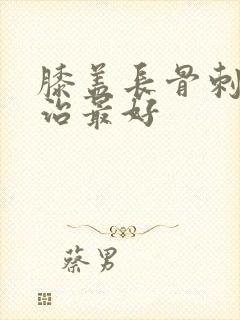 膝盖長骨刺
治最好
蔡男